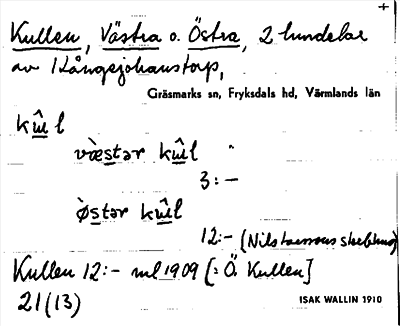 Kullen, Västra o. Östra, 2 lundelar
av Kångsjohanstorp,
Gräsmarks sn, Fryksdals hd, Värmlands län
kûl
væ̀stər kûl "
3:-
ø̀stər kûl
12:-
Kullen 12:- ml 1909 [= Ö. Kullen]
21(13)
ISAK WALLIN 1910